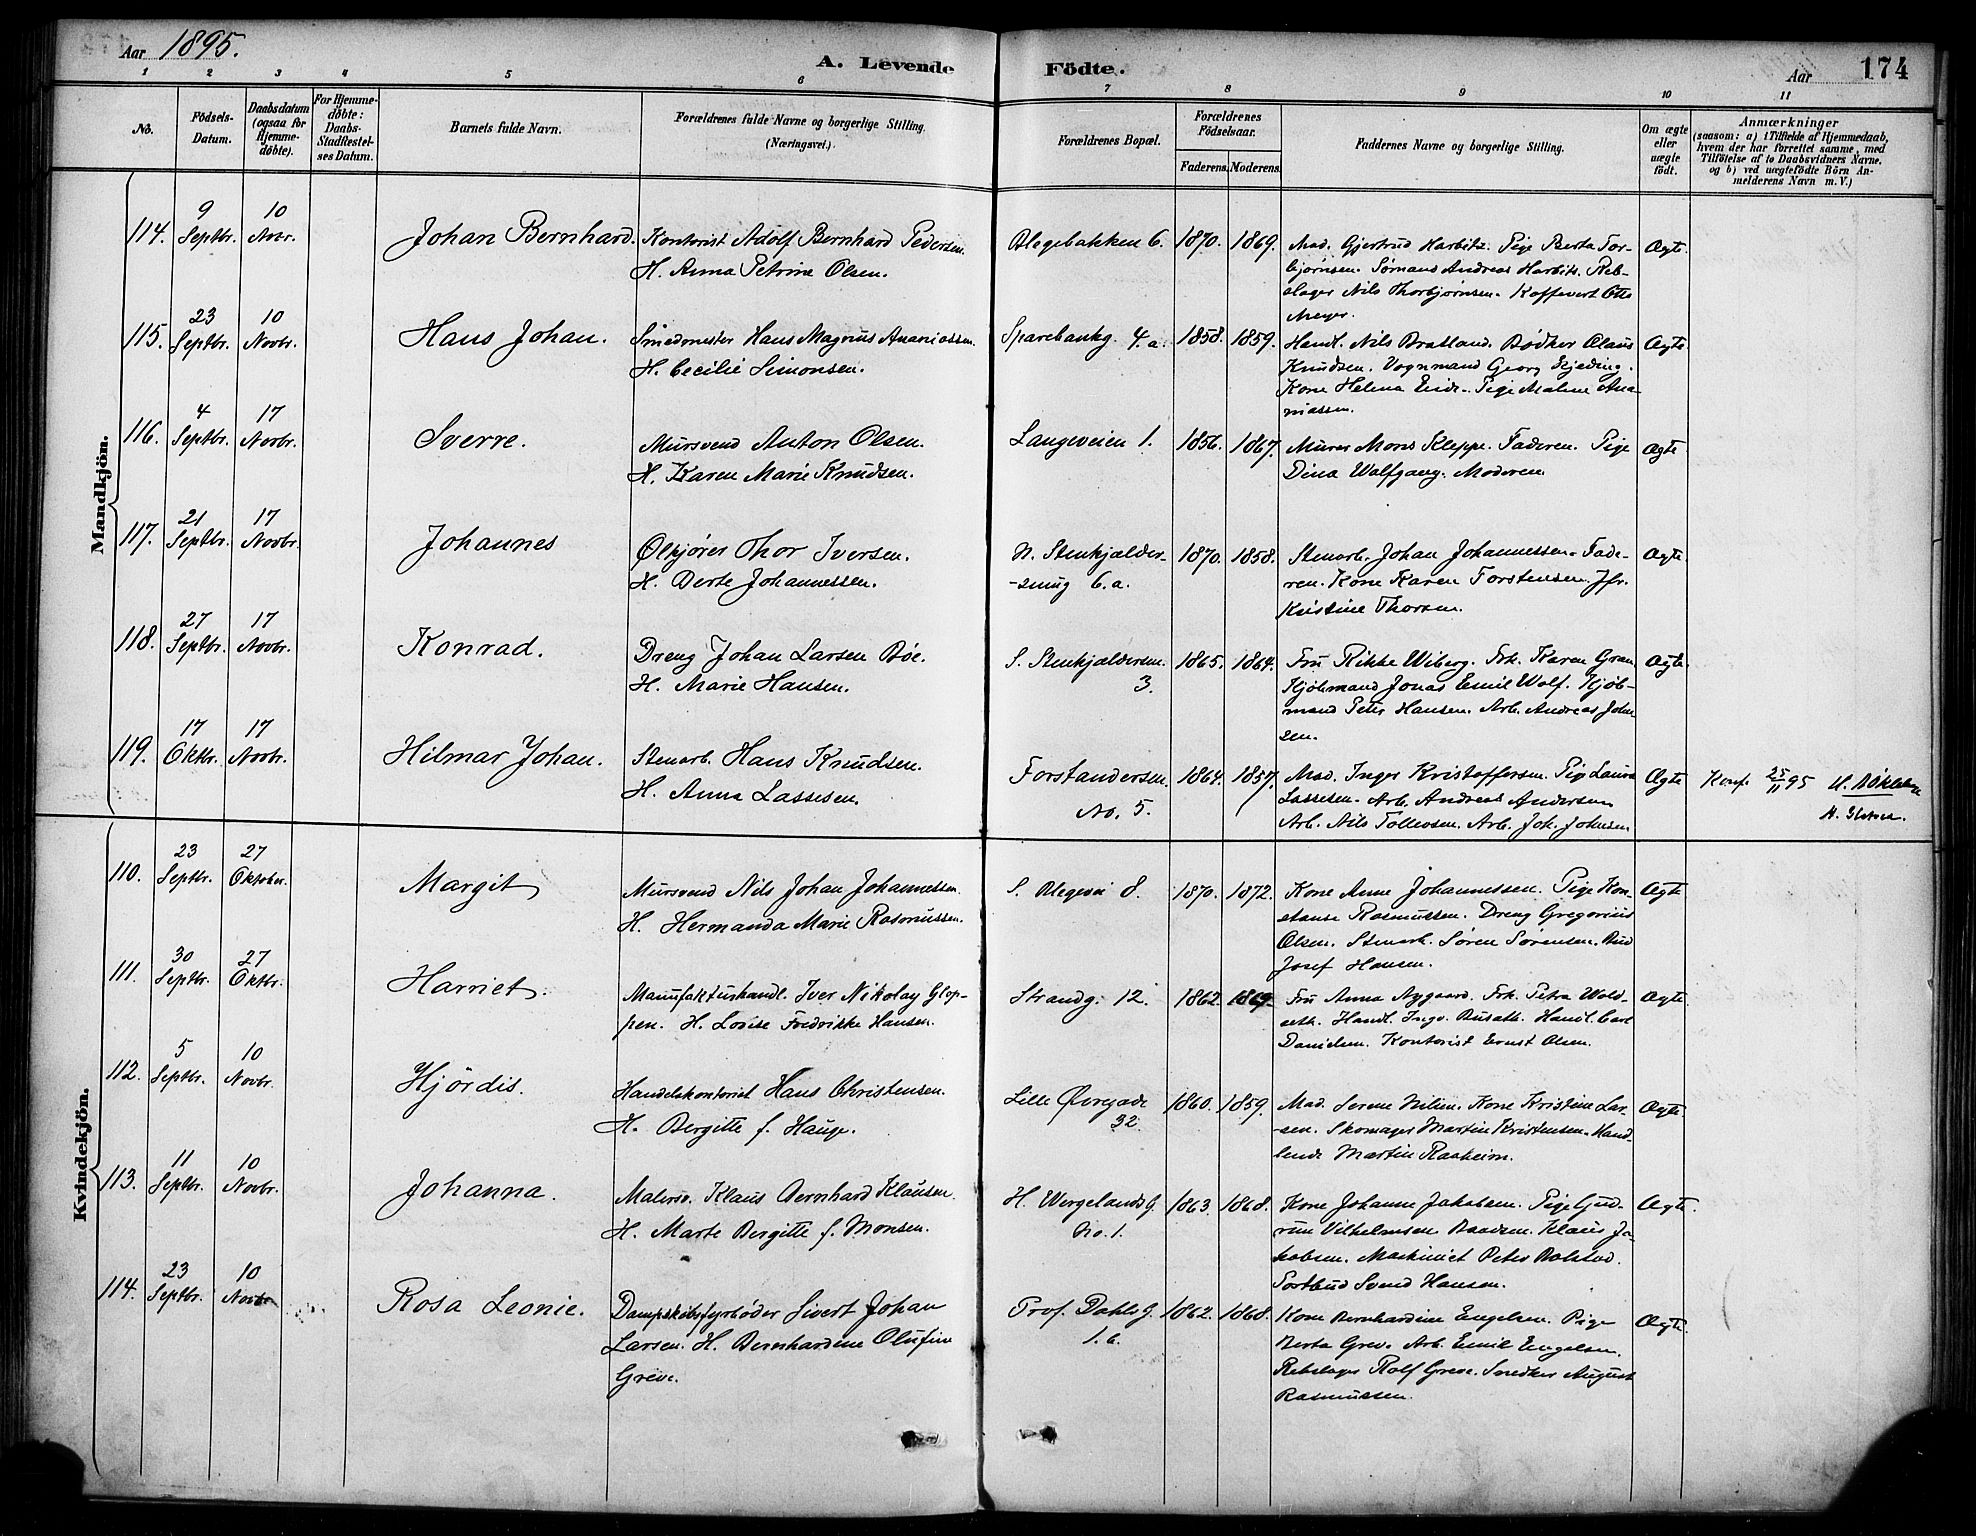 Aar 1895.
A. Levende Födte.
Aar 174
1 2 3 4 5 6 7 8 9 10 11
No.
Födsels-
Datum.
Daabsdatum
(ogsaa for
Hjemme-
døbte).
For Hjemme-
döbte:
Daabs-
Stadfæstel-
ses Datum.
Barnets fulde Navn.
Forældrenes fulde Navne og borgerlige Stilling.
(Næringsvei.)
Forældrenes Bopæl.
Forældrenes
Födselsaar.
Faderens. Moderens.
Faddernes Navne og borgerlige Stilling.
Om ægte
eller
uægte
födt.
Anmærkninger
(saasom: a) i Tilfælde af Hjemmedaab,
hvem der har forrettet samme, med
Tilföielse af to Daabsvidners Navne,
og b) ved uægtefödte Börn An-
melderens Navn m. V.)
Mandkjön.
114. 9 Septbr. 10 Novr. Johan Bernhard. Kontorist Adolf Bernhard Pedersen
H. Anna Petrine Olsen.
Blegebakken 6. 1870. 1869. Mad. Gjertrud Harbitz. Pige Berta Tor-
bjørnsen. Sømand Andreas Harbitz. Reb-
slager Nils Thorbjørnsen. Koffevert Otto
Meyer. Ægte.
115. 23 Septbr. 10 Novbr. Hans Johan. Smedmester Hans Magnus Ananiassen.
H. Cecilie Simonsen.
Sparebankg. 4.a. 1858. 1859. Handl. Nils Bratland. Bødker Claus
Knudsen. Vognmand Georg
Kone Helena Eide. Pige Malene Ana-
niassen. Ægte
116. 4 Septbr. 17 Novbr. Sverre. Mursvend Anton Olsen.
H. Karen Marie Knudsen.
Langeveien 1. 1856. 1867. Murer Mons Kleppe. Faderen. Pige
Dina Wolfgang. Moderen. Ægte.
117. 21 Septbr. 17 Novbr. Johannes Ølkjører Thor Iversen.
H. Berte Johannessen.
N. Stenkjælder-
-smug 6.a. 1870. 1858. Stenarb. Johan Johannessen. Fade-
ren. Kone Karen Torstensen. Jfr.
Kristine Thorsen. Ægte.
118. 27 Septbr. 17 Novbr. Konrad. Dreng Johan Larsen Böe.
H. Marie Hansen.
S. Stenkjældersm.
3. 1865. 1864. Fru Rikke Wiberg. Frk. Karen Gran
Kjöbmand Jonas Emil Wolf. Kjöb-
mand Peter Hansen. Arb. Andreas John-
sen. Ægte.
119. 17 Oktbr. 17 Novbr. Hilmar Johan. Stenarb. Hans Knudsen.
H. Anna Lassesen.
Forstandersm.
No. 5. 1864. 1857. Mad. Inger Kristoffersen. Pige Laura
Lassesen. Arb. Andreas Andersen
Arb. Nils Tollevsen. Arb. Joh. Johnsen Ægte Konf. 25/11 95
Kvindekjön.
110. 23 Septbr. 27 Oktober. Margit Mursvend Nils Johan Johannessen.
H. Hermanda Marie Rasmussen.
S. Blegevei 8. 1870. 1872. Kone Anne Johannessen. Pige Kon-
stanse Rasmussen. Dreng Gregorius
Olsen. Stenarb. Søren Sørensen. Bud
Josef Hansen. Ægte
111. 30 Septbr. 27 Oktbr. Harriet. Manufakturhandl. Iver Nikolay Glop-
pen. H. Lovise Fredrikke Hansen.
Strandg. 12. 1862. 1869. Fru Anna Aagaard. Frk. Petra Wold-
seth. Handl. Ingv. Handl. Carl
Danielsen. Kontorist Ernst Olsen. Ægte.
112. 5 Septbr. 10 Novbr. Hjördis. Handelskontorist Hans Christensen.
H. Bergitte f. Hauge.
Lille Øvregade
32. 1860. 1859. Mad. Serene Nilsen. Kone Kristine Lar-
-sen. Skomager Martin Kristensen. Hand-
lende Martin Raaheim. Ægte.
113. 11 Septbr. 10 Novbr. Johanna. Malersv. Klaus Bernhard Klausen.
H. Marte Bergitte f. Monsen.
H. Wergelands G.
No. 1. 1863. 1868. Kone Johanne Jakobsen. Pige Gud-
run Vilhelmsen Klaus Ja-
kobsen. Maskinist Peter
Svend Hansen. Ægte.
114. 23 Septbr. 10 Novbr. Rosa Leonie. Dampskibsfyrbøder Sivert Johan
Larsen. H. Bernhardine Olufine
Greve.
Prof. Dahls G.
1.b. 1862. 1868. Kone Bernhardine Engelsen. Pige
Berta Greve. Arb. Emil Engelsen.
Rebslager Rolf Greve. Snedker August
Rasmussen. Ægte.